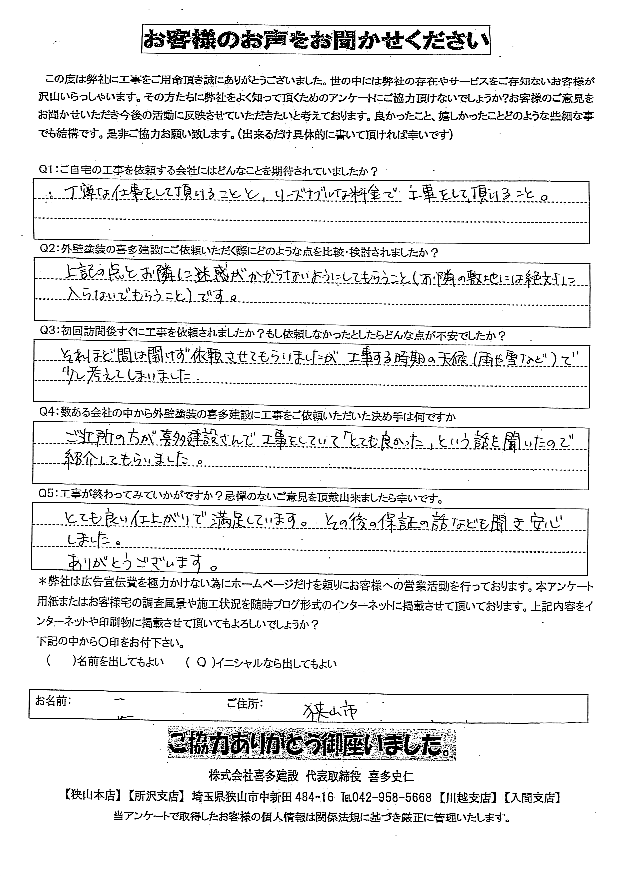 お客様のお声をお聞かせください
この度は弊社に工事をご用命頂き誠にありがとうございました。世の中には弊社の存在やサービスをご存知ないお客様が
沢山いらっしゃいます。その方たちに弊社をよく知って頂くためのアンケートにご協力頂けないでしょうか?お客様のご意見を
お聞かせいただき今後の活動に反映させていただきたいと考えております。良かったこと、嬉しかったことどのような些細な事
でも結構です。是非ご協力お願い致します。(出来るだけ具体的に書いて頂ければ幸いです)
Q1:ご自宅の工事を依頼する会社にはどんなことを期待されていましたか?
丁寧な仕事をして頂けることと、リーズナブルな料金で工事をして頂けること。
Q2:外壁塗装の喜多建設にご依頼いただく際にどのような点を比較・検討されましたか?
上記の点とお隣に迷惑がかからないようにしてもらうこと(お隣の敷地には絶対に
入らないでもらうこと)です。
Q3:初回訪問後すぐに工事を依頼されましたか?もし依頼しなかったとしたらどんな点が不安でしたか?
それほど間は開けず依頼させてもらいましたが工事する時期の天候(雨や雪など)で
少し考えてしまいました
Q4:数ある会社の中から外壁塗装の喜多建設に工事をご依頼いただいた決め手は何ですか
ご近所の方が喜多建設さんで工事をしていて「とても良かった」という話を聞いたので
紹介してもらいました。
Q5:工事が終わってみていかがですか?忌憚のないご意見を頂戴出来ましたら幸いです。
とても良い仕上がりで満足しています。その後の保証の話なども聞き安心
しました。
ありがとうございます。
*弊社は広告宣伝費を極力かけない為にホームページだけを頼りにお客様への営業活動を行っております。本アンケート
用紙またはお客様宅の調査風景や施工状況を随時ブログ形式のインターネットに掲載させて頂いております。上記内容をイ
ンターネットや印刷物に掲載させて頂いてもよろしいでしょうか?
下記の中から〇印をお付下さい。
( )名前を出してもよい (○)イニシャルなら出してもよい
お名前: ご住所: 狭山市
ご協力ありがとう御座いました。
株式会社喜多建設 代表取締役 喜多史仁
【狭山本店】【所沢支店】 埼玉県狭山市中新田484-16 ℡042-958-5668 【川越支店】【入間支店】
当アンケートで取得したお客様の個人情報は関係法規に基づき厳正に管理いたします。